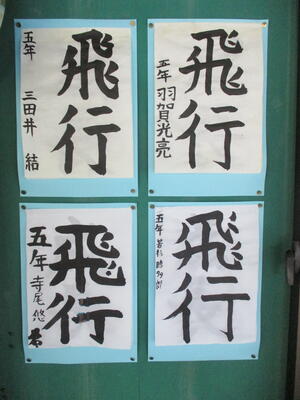 飛行
五年 三田井 結
飛行
五年 羽賀光亮
飛行
五年 寺尾 悠
飛行
五年